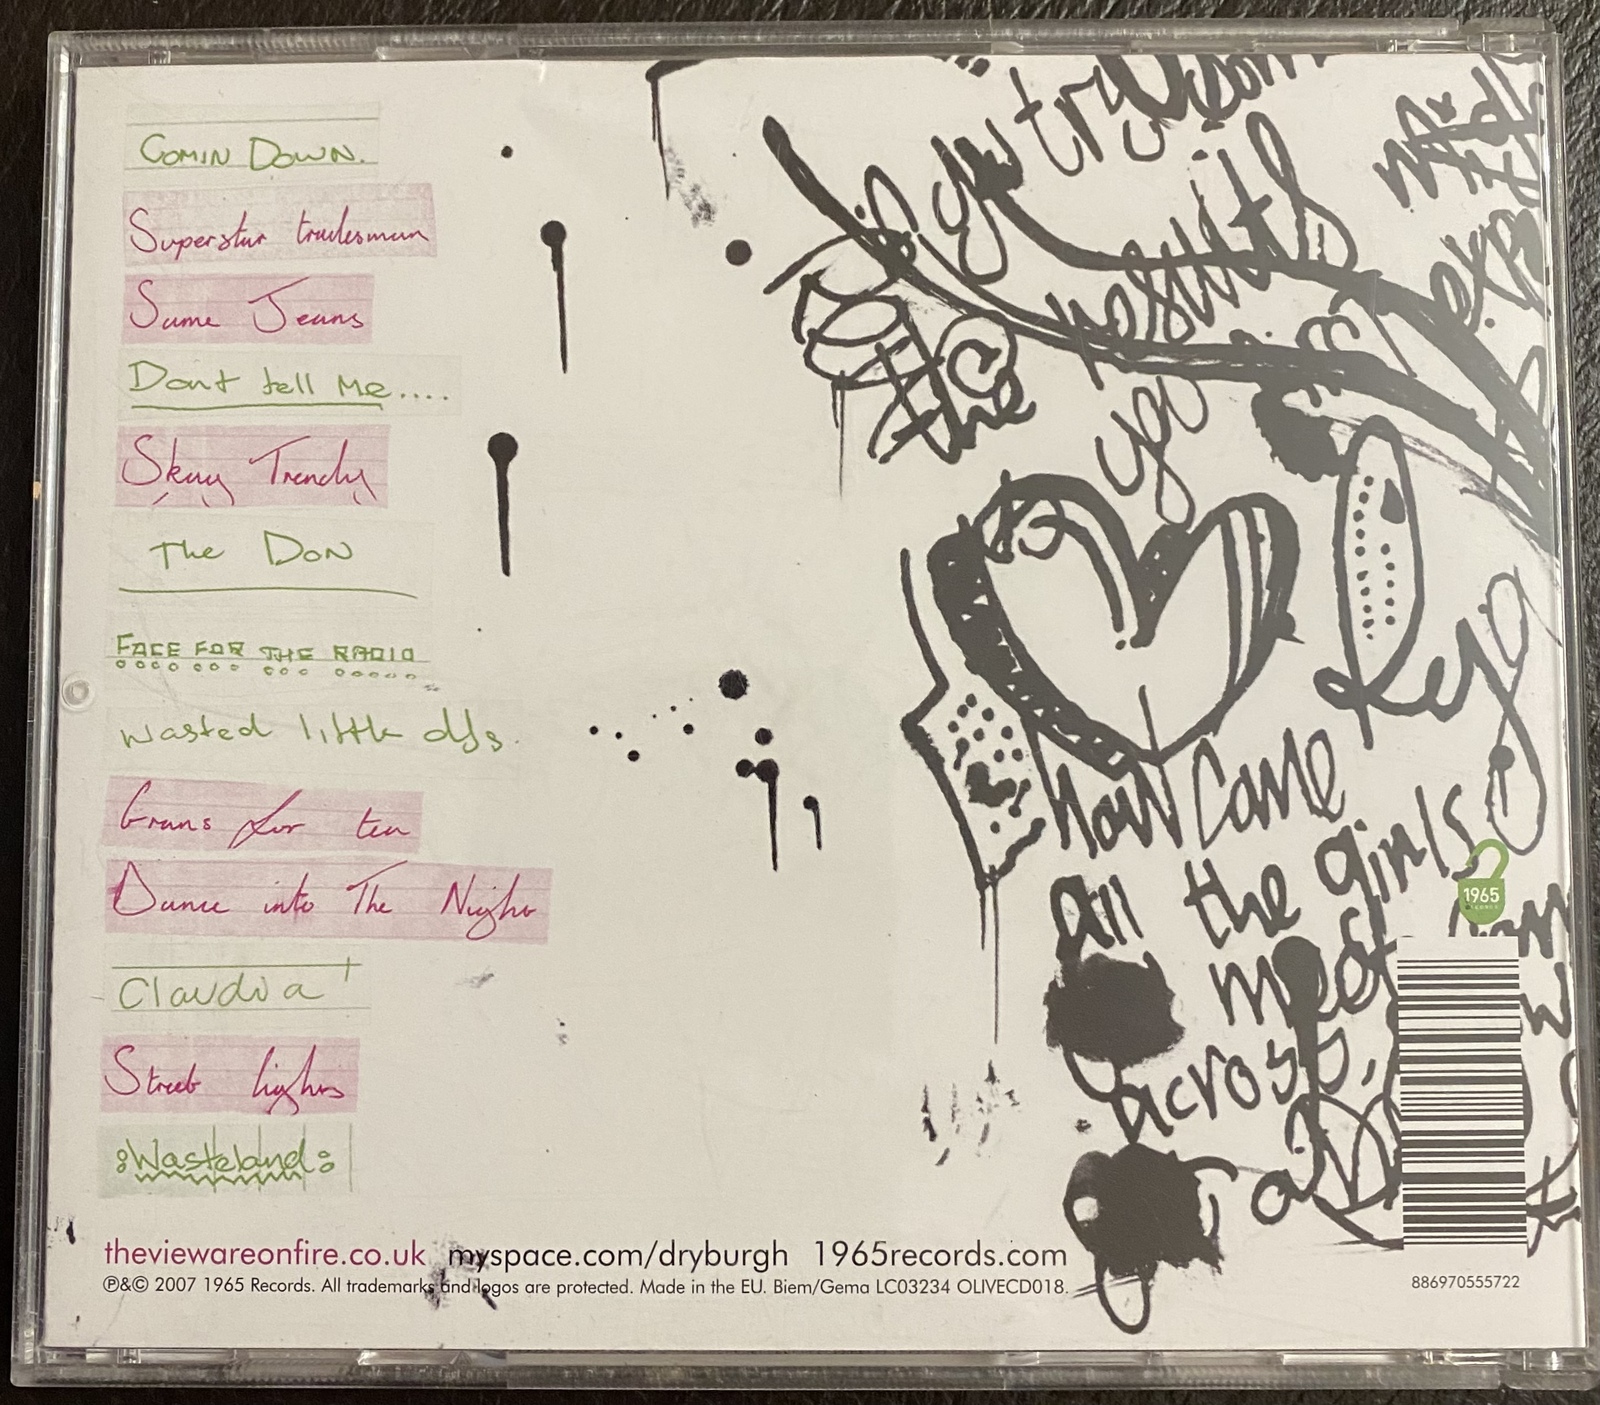 Comin Down.
Superstar tradesman
Same Jeans
Dont tell Me....
Skag Trendy
The Don
FACE FOR THE RADIO
wasted little DJs.
Grans for tea
Dance into The Night
Claudia
Street lights
Wasteland
theviewareonfire.co.uk myspace.com/dryburgh 1965records.com
℗&© 2007 1965 Records. All trademarks and logos are protected. Made in the EU. Biem/Gema LC03234 OLIVECD018.
try
the results
you
how come
all the girls
med
across,
1965
886970555722